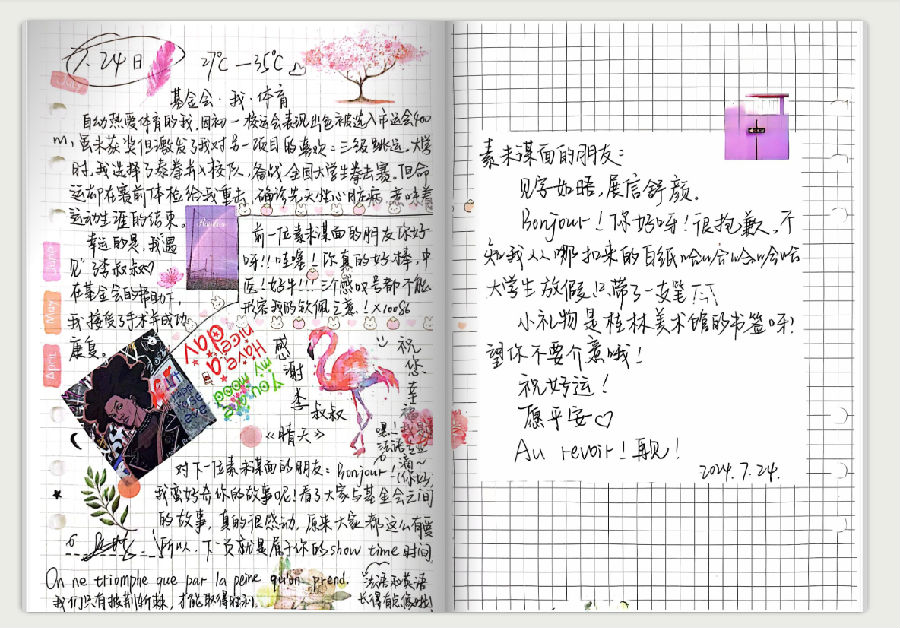 7.24日
27℃—35℃
基金会·我·体育
自幼热爱体育的我,因初一校运会表现出色被选入市运会400
m,虽未获奖但激发了我对另一项目的喜欢:三级跳远。大学
时,我选择了泰拳并入校队,备战全国大学生拳击赛。但命
运却在赛前体检给我重击,确诊先天性心脏病,意味着
运动生涯的结束。
幸运的是,我遇
见了李叔叔♡
在基金会的帮助下,
我接受了手术并成功
康复。
前一位素未谋面的朋友你好
呀!!哇塞!你真的好棒,中
医!好牛!!!三个感叹号都不能
形容我的钦佩之意!×10086
June
May
April
Have a nice day
You are my mood
感谢李叔叔
《晴天》
祝您幸福
对下一位素未谋面的朋友:Bonjour!
我蛮好奇你的故事呢!看了大家与基金会之间
的故事,真的很感动,原来大家都这么有爱
所以,下一页就是属于你的show time时间
On ne triomphe que par la peine qu'on prend.
我们只有披荆斩棘,才能取得胜利。
法语和英语
长得有点像哦!
素未谋面的朋友:
见字如晤,展信舒颜。
Bonjour!你好呀!很抱歉,不
知我从哪扣来的白纸哈哈哈哈哈
大学生放假只带了一支笔
小礼物是桂林美术馆的书签呀!
望你不要介意哦!
祝好运!
愿平安♡
Au revoir!再见!
2024.7.24.